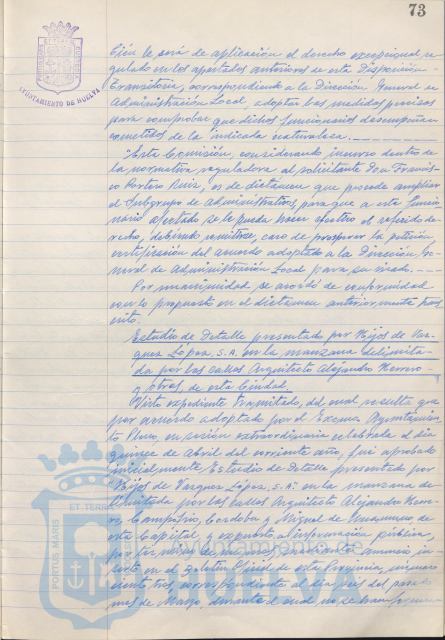 73
AYUNTAMIENTO DE HUELVA
bién le será de aplicación el derecho excepcional re-
gulado en los apartados anteriores de esta Disposición
Transitoria, correspondiendo a la Dirección General de
Administración Local, adoptar las medidas precisas
para comprobar que dichos funcionarios desempeñan
cometidos de la indicada naturaleza.
"Esta Comisión, considerando incurso dentro de
la normativa reguladora al solicitante Don Francis-
co Portero Ruiz, es de dictamen que procede ampliar
el Subgrupo de Administrativos, para que a este funcio-
nario afectado se le pueda hacer efectivo el referido de-
recho, debiendo remitirse, caso de prosperar la petición
certificación del acuerdo adoptado a la Dirección Ge-
neral de Administración Local para su visado.
Por unanimidad se acordó de conformidad
con lo propuesto en el dictamen anteriormente trans-
crito.
Estudio de Detalle presentado por Hijos de Vaz-
quez López, S.A. en la manzana delimita-
da por las calles Arquitecto Alejandro Herrero
y otras, de esta Ciudad.
Visto expediente tramitado, del cual resulta que
por acuerdo adoptado por el Excmo. Ayuntamien-
to Pleno, en sesión extraordinaria celebrada el día
quince de Abril del corriente año, fué aprobado
inicialmente Estudio de Detalle presentado por
"Hijos de Vazquez López, S.A." en la manzana de-
limitada por las calles Arquitecto Alejandro Herre-
ro, Campofrío, Cordoba y Miguel de Unamuno, de
esta Capital, y expuesto a información pública,
por término de un mes, mediante anuncio, in-
serto en el Boletín Oficial de esta Provincia, número
ciento tres, correspondiente al día seis del pasado
mes de Mayo, durante el cual, no se han
PORTUS MARIS ET TERRAE
HUELVA